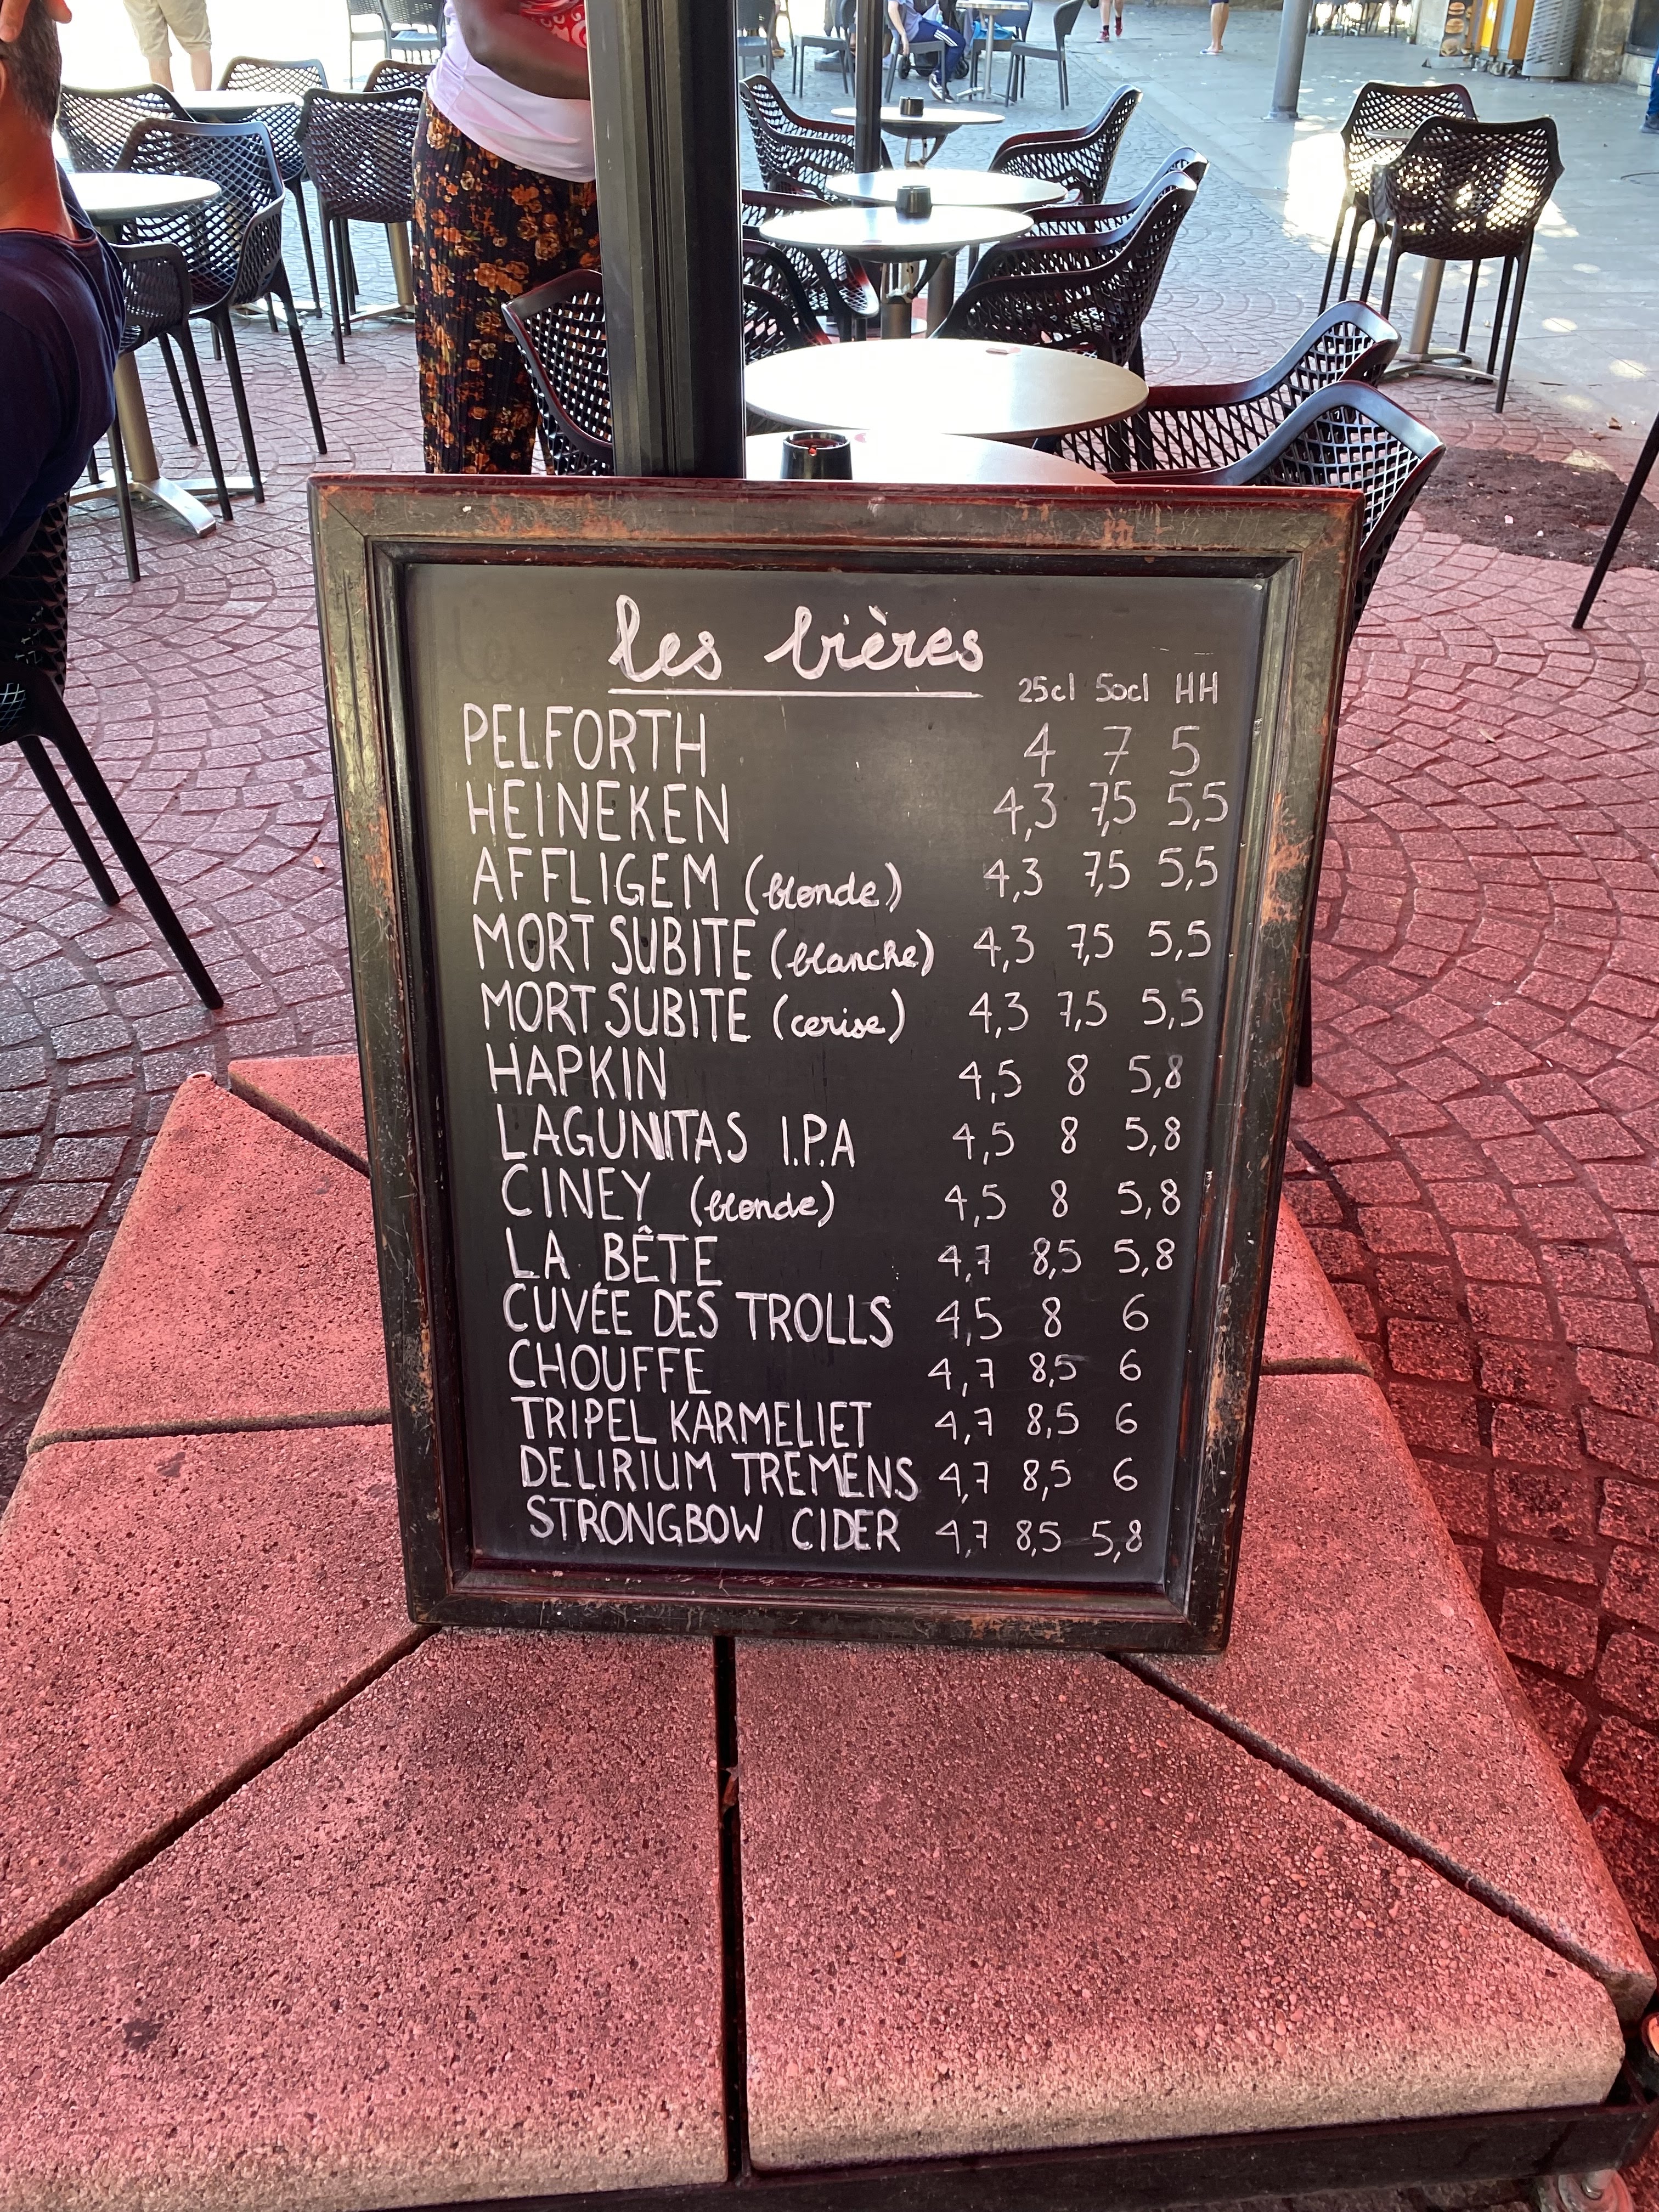 les bières
25cl 50cl HH
PELFORTH 4 7 5
HEINEKEN 4,3 7,5 5,5
AFFLIGEM (blonde) 4,3 7,5 5,5
MORT SUBITE (blanche) 4,3 7,5 5,5
MORT SUBITE (cerise) 4,3 7,5 5,5
HAPKIN 4,5 8 5,8
LAGUNITAS I.P.A 4,5 8 5,8
CINEY (blonde) 4,5 8 5,8
LA BÊTE 4,7 8,5 5,8
CUVÉE DES TROLLS 4,5 8 6
CHOUFFE 4,7 8,5 6
TRIPEL KARMELIET 4,7 8,5 6
DELIRIUM TREMENS 4,7 8,5 6
STRONGBOW CIDER 4,7 8,5 5,8